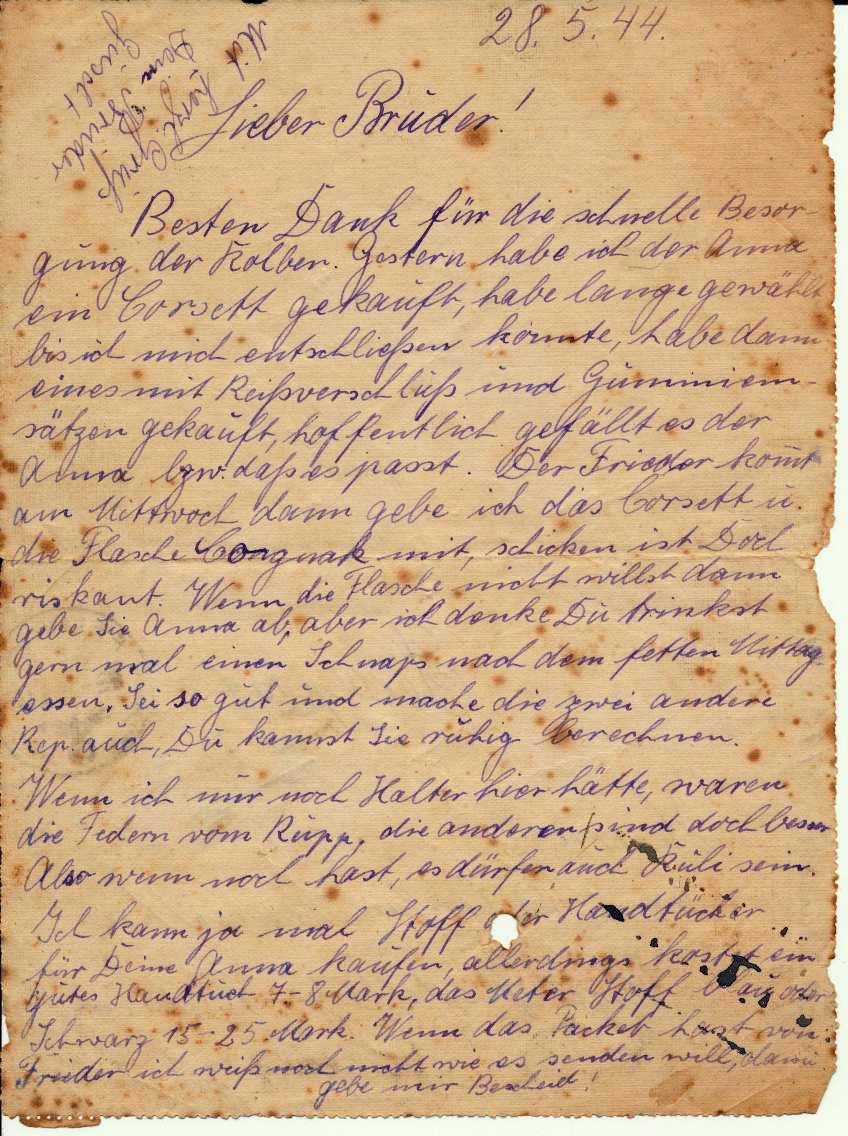 28. 5. 44.
Lieber Bruder!
Besten Dank für die schnelle Besor-
gung der Kolben. Gestern habe ich der Anna
ein Corsett gekauft, habe lange gewählt
bis ich mich entschließen konnte, habe dann
eines mit Reißverschluß und Gummiein-
sätzen gekauft, hoffentlich gefällt es der
Anna bzw. daß es passt. Der Frieder kom̄t
am Mittwoch dann gebe ich das Corsett u.
die Flasche Congnak mit, schicken ist Doch
riskant. Wenn die Flasche nicht willst dann
gebe Sie Anna ab, aber ich denke Du trinkst
gern mal einen Schnaps nach dem fetten Mittag
essen. Sei so gut und mache die zwei andere
Rep. auch, Du kannst Sie ruhig berechnen.
Wenn ich nur noch Halter hier hätte, waren
die Federn vom Rupp, die anderen sind doch besser
Also wenn noch hast, es dürfen auch Kuli sein.
Ich kann ja mal Stoff oder Handtücher
für Deine Anna kaufen, allerdings kostet ein
gutes Handtuch 7-8 Mark, das Meter Stoff blau oder
Schwarz 15-25 Mark. Wenn das Packet hast von
Frieder ich weiß noch nicht wie es senden will, dann
gebe mir Bescheid!
Mit herzl. Gruß
Dein Bruder